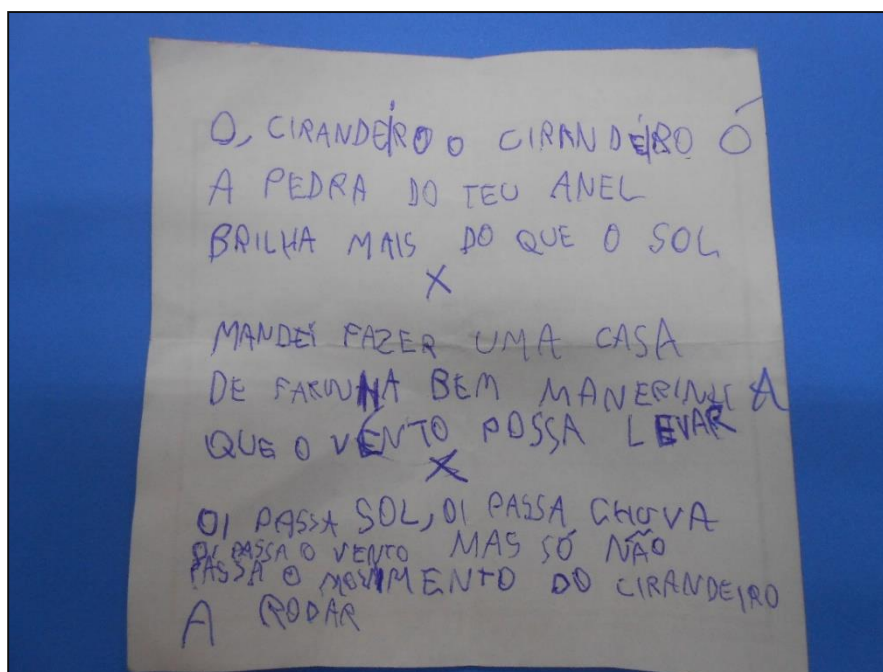 O, CIRANDEIRO O CIRANDEIRO Ó
A PEDRA DO TEU ANEL
BRILHA MAIS DO QUE O SOL
X
MANDEI FAZER UMA CASA
DE FARINHA BEM MANERINHA
QUE O VENTO POSSA LEVAR
X
OI PASSA SOL, OI PASSA CHUVA
OI PASSA O VENTO MAS SÓ NÃO
PASSA O MOVIMENTO DO CIRANDEIRO
A RODAR